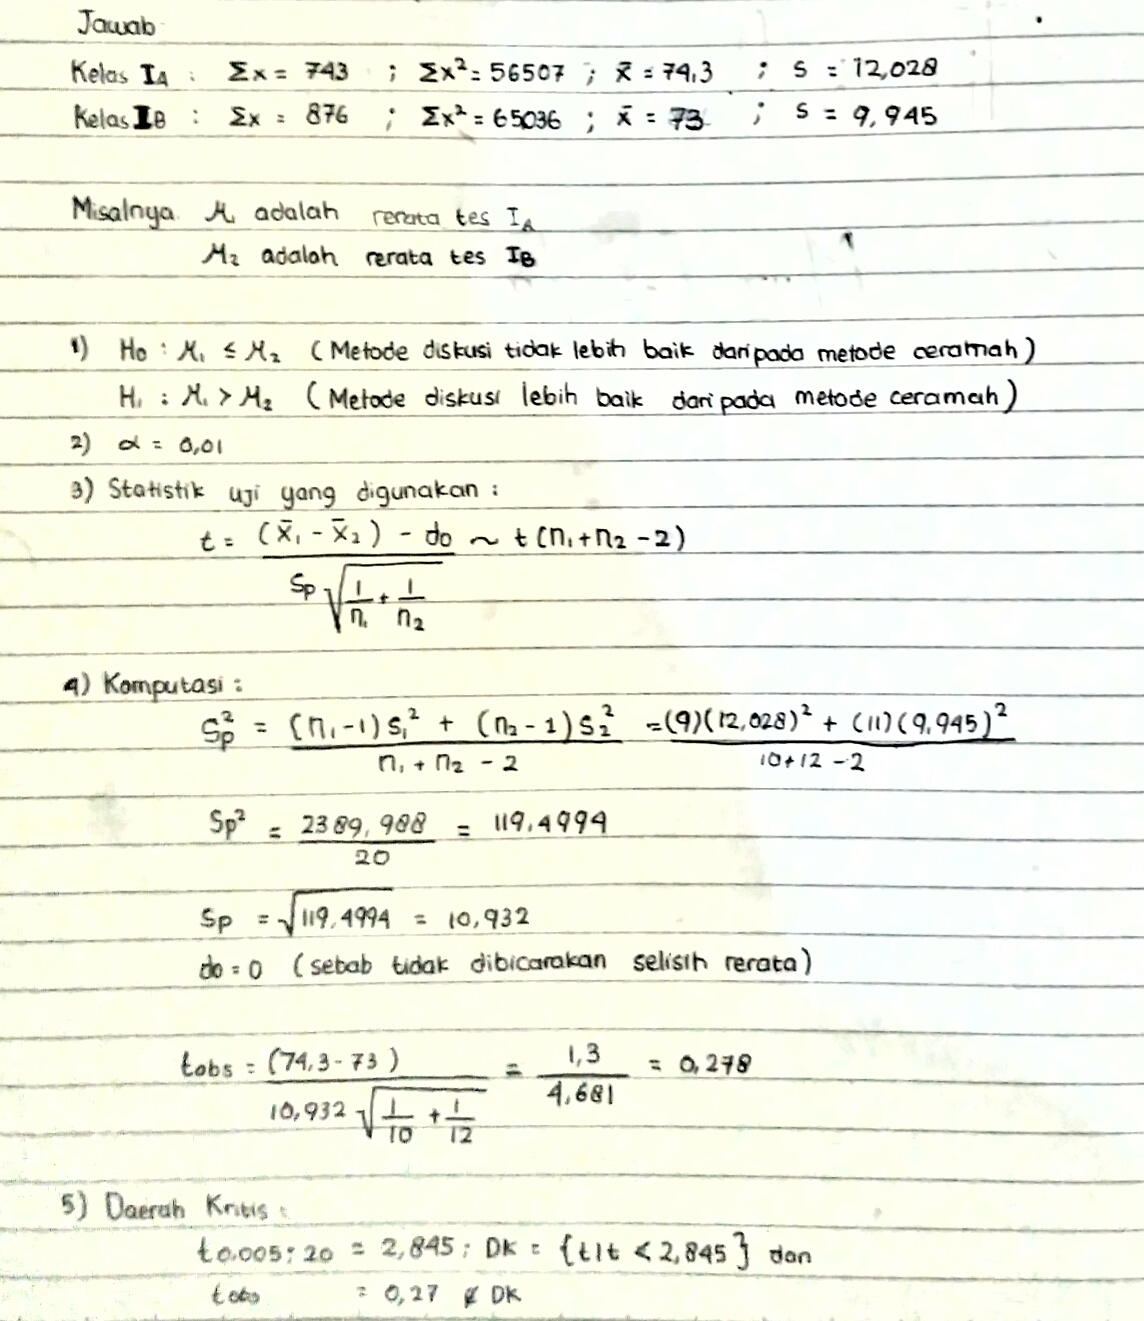 Jawab
Kelas IA : Σx = 743 ; Σx² = 56507 ; x̄ = 74,3 ; s = 12,028
Kelas IB : Σx = 876 ; Σx² = 65036 ; x̄ = 73 ; s = 9,945
Misalnya μ₁ adalah rerata tes IA
μ₂ adalah rerata tes IB
1) H₀ : μ₁ ≤ μ₂ (Metode diskusi tidak lebih baik daripada metode ceramah)
H₁ : μ₁ > μ₂ (Metode diskusi lebih baik daripada metode ceramah)
2) α = 0,01
3) Statistik uji yang digunakan :
t = ((x̄₁ - x̄₂) - do) / (Sp √(1/n₁ + 1/n₂)) ~ t(n₁+n₂-2)
4) Komputasi :
Sp² = ((n₁-1)s₁² + (n₂-1)s₂²) / (n₁ + n₂ - 2) = ((9)(12,028)² + (11)(9,945)²) / (10+12-2)
Sp² = 2389,988 / 20 = 119,4994
Sp = √119,4994 = 10,932
do = 0 (sebab tidak dibicarakan selisih rerata)
tobs = (74,3 - 73) / (10,932 √(1/10 + 1/12)) = 1,3 / 4,681 = 0,278
5) Daerah Kritis :
t0.005;20 = 2,845; DK = {t|t < 2,845} dan
tobs = 0,27 ∉ DK